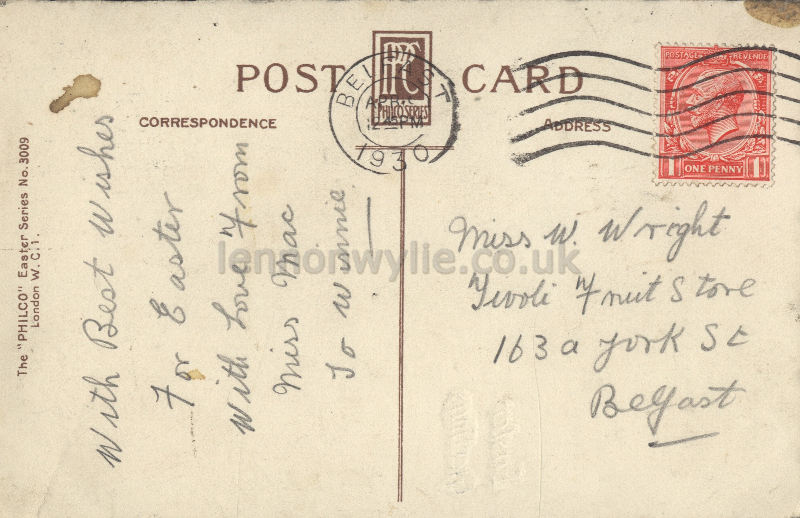 POST CARD
PC
PHILCO SERIES
BELFAST
APR
12 PM
1930
POSTAGE REVENUE
1D 1D
ONE PENNY
CORRESPONDENCE
ADDRESS
The "PHILCO" Easter Series No. 3009
London W.C.1.
With Best Wishes
For Easter
With Love From
Miss Mac
To Winnie
Miss W. Wright
Tivoli Fruit Store
163a York St
Belfast
lennonwylie.co.uk